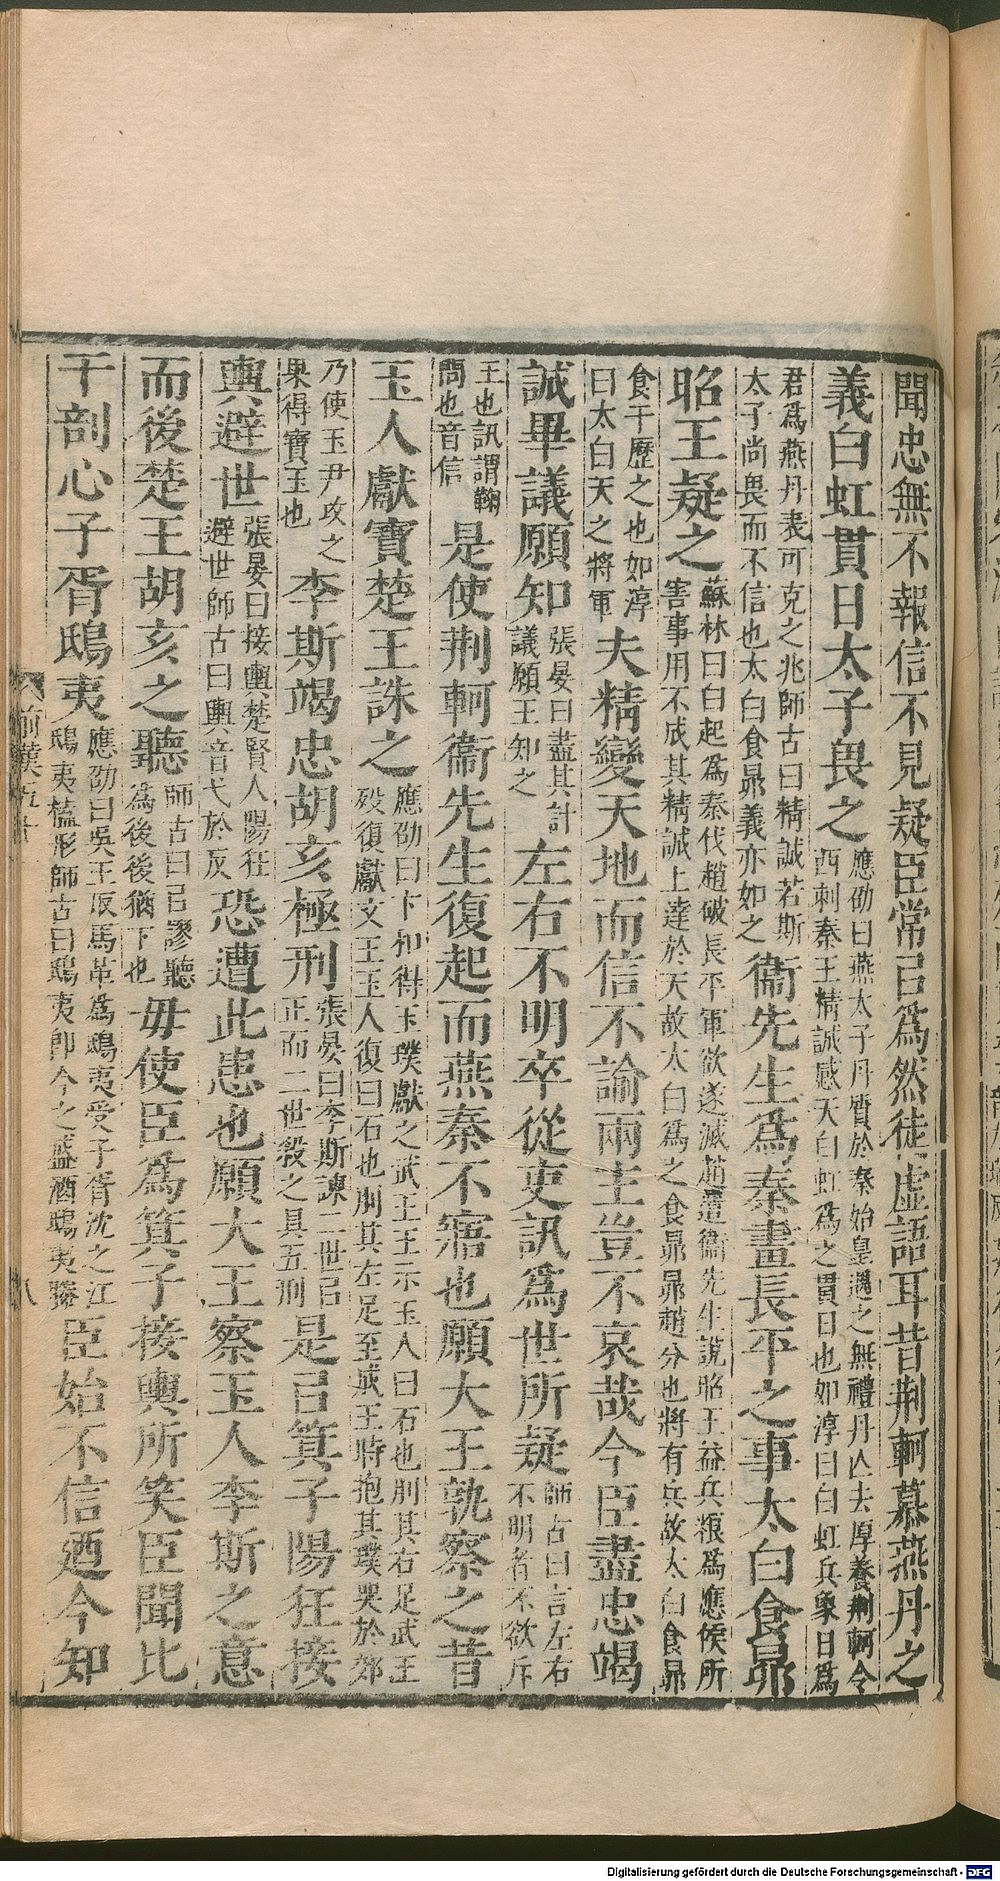 聞忠無不報信不見疑臣常㠯爲然徒虛語耳昔荆軻慕燕丹之
義白虹貫日太子畏之應劭曰燕太子丹質於秦始皇遇之無禮丹亾去厚養荆軻令西刺秦王精誠感天白虹爲之貫日也如淳曰白虹兵象日爲
君爲燕丹表可克之兆師古曰精誠若斯太子尚畏而不信也太白食昴義亦如之衞先生爲秦畫長平之事太白食昴
昭王疑之蘇林曰白起爲秦伐趙破長平軍欲遂滅趙遣衞先生說昭王益兵粮爲應候所害事用不成其精誠上達於天故太白爲之食昴昴趙分也將有兵故太白食昴
食干歷之也如淳曰太白天之將軍夫精變天地而信不諭兩主豈不哀哉今臣盡忠竭
誠畢議願知張晏曰盡其計議願王知之左右不明卒從吏訊爲世所疑師古曰言左右不明者不欲斥
王也訊謂鞠問也音信是使荆軻衞先生復起而燕秦不寤也願大王孰察之昔
玉人獻寶楚王誅之應劭曰卞和得玉璞獻之武王王示玉人曰石也刖其右足武王歿復獻文王玉人復曰石也刖其左足至成王時抱其璞哭於郊
乃使玉尹攻之果得寶玉也李斯竭忠胡亥極刑張晏曰李斯諫二世㠯正而二世殺之具五刑是㠯箕子陽狂接
輿避世張晏曰接輿楚賢人陽狂避世師古曰輿音弋於反恐遭此患也願大王察玉人李斯之意
而後楚王胡亥之聽師古曰㠯謬聽爲後後猶下也毋使臣爲箕子接輿所笑臣聞比
干剖心子胥鴟夷應劭曰吳王取馬革爲鴟夷受子胥沈之江鴟夷榼形師古曰鴟夷卽今之盛酒鴟夷幐臣始不信廼今知
前漢五十
八
Digitalisierung gefördert durch die Deutsche Forschungsgemeinschaft - DFG